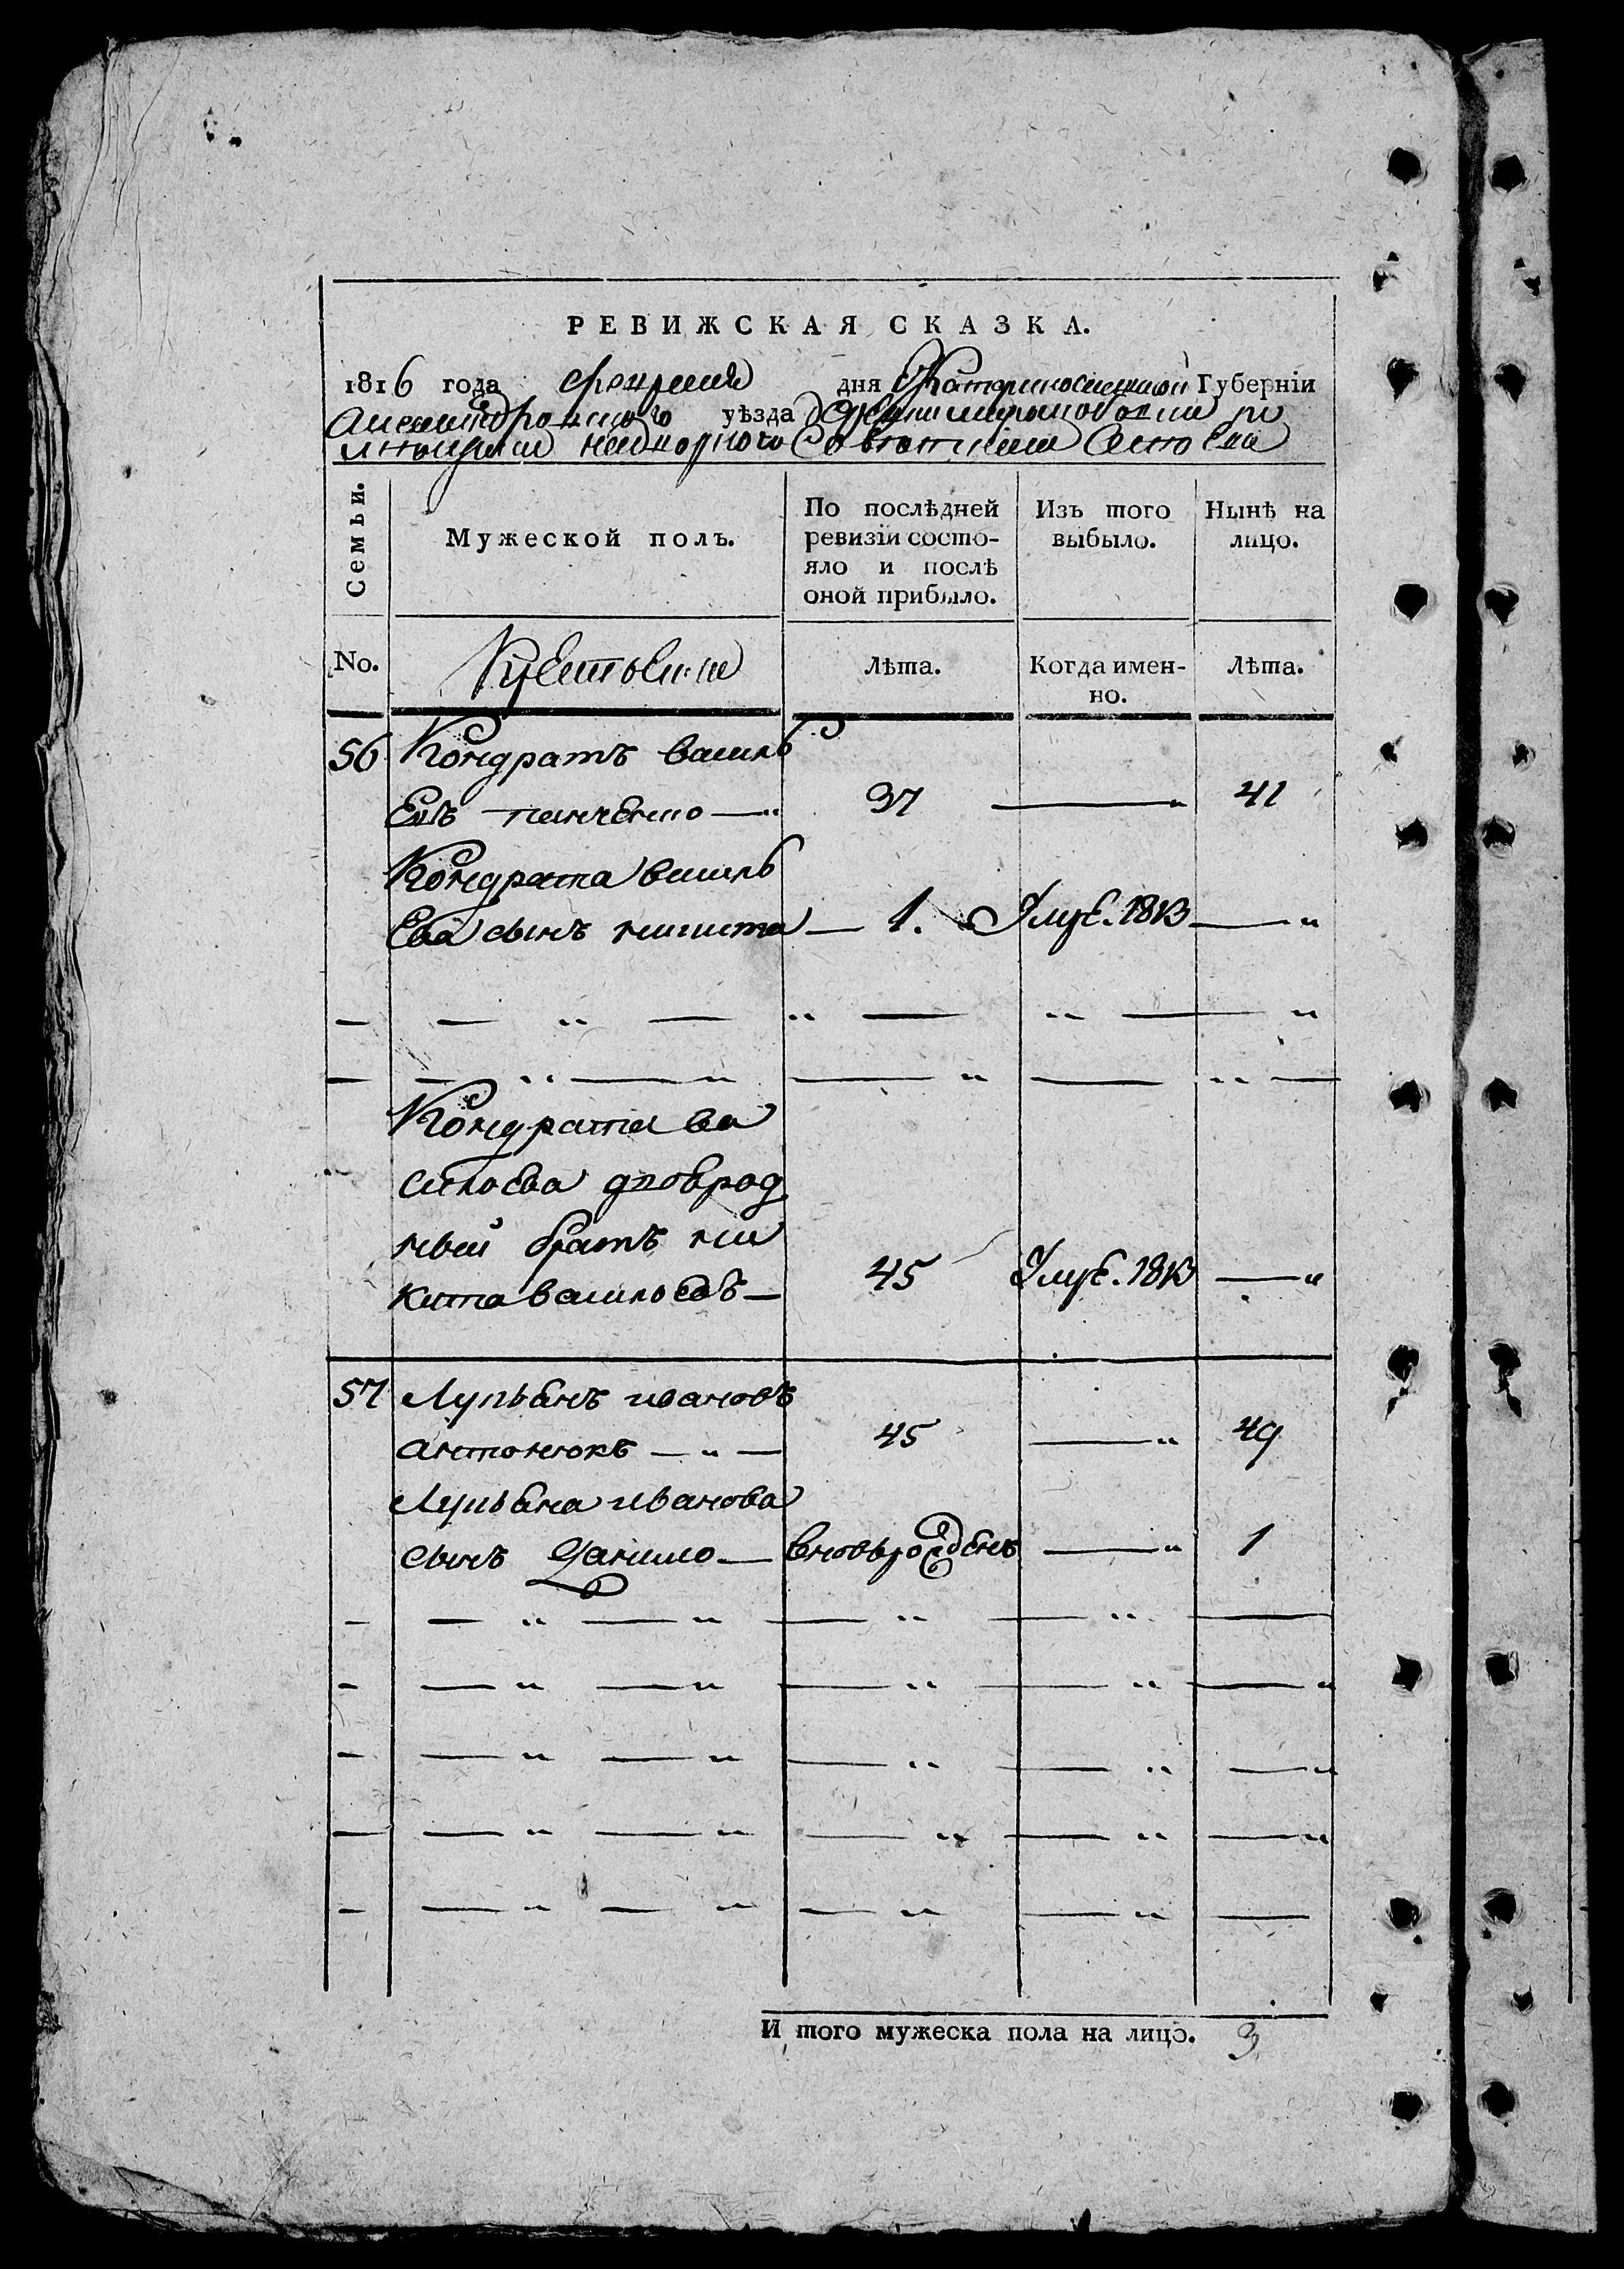 РЕВИЖСКАЯ СКАЗКА.
1816 года Февраля дня Екатеринославской Губерніи
Александровскаго уѣзда
надворнаго Совѣтника
Семьи.
Мужеской полъ.
По послѣдней ревизіи состо-
яло и послѣ
оной прибыло.
Изъ того
выбыло.
Нынѣ на
лицо.
No.
Крестьяни
лѣта.
Когда имен-
но.
лѣта.
56 Кондратъ василь
евъ панченко — 37 — 41
Кондрата василь
ева сынъ никита — 1. Умре. 1813 —
Кондрата ва
сильева двоврод
ный братъ ни
кита васильевъ — 45 Умре. 1813 —
57 Лукьянъ ивановъ
антонюкъ — 45 — 49
Лукьяна иванова
сынъ Данило — вновьрожденъ — 1
И того мужеска пола на лицо. 3